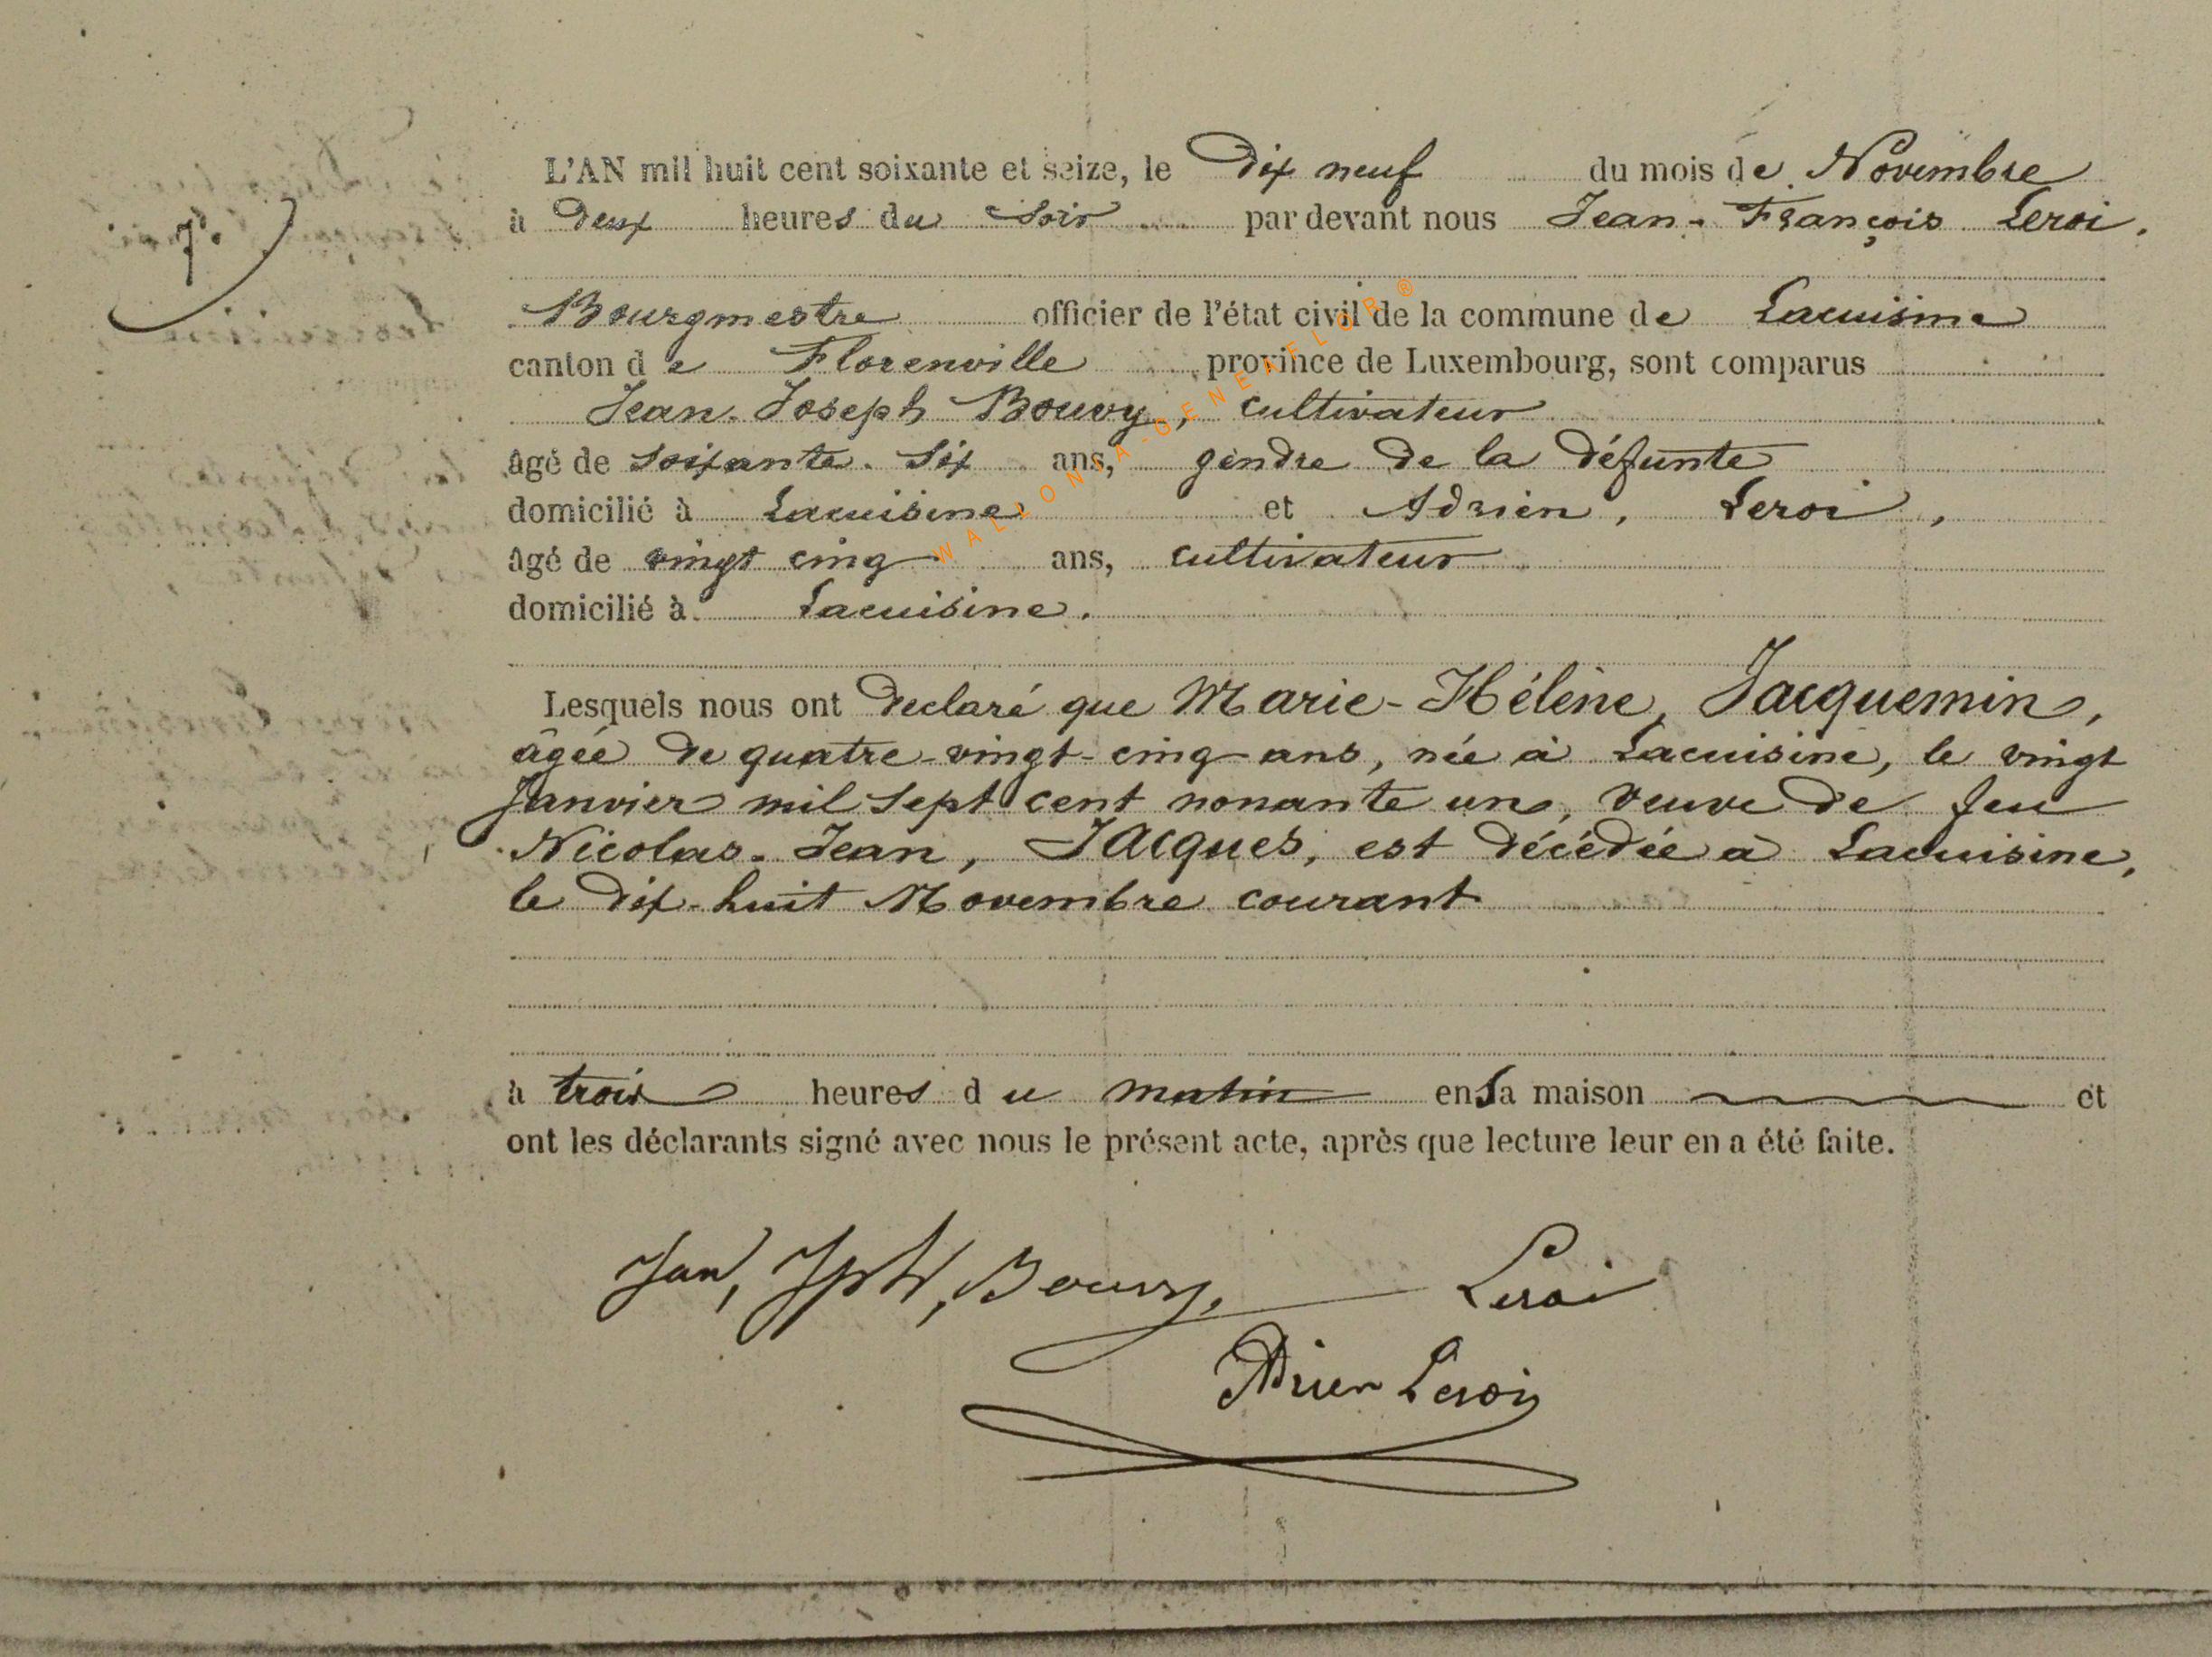 L'AN mil huit cent soixante et seize, le Dix neuf du mois de Novembre
à Deux heures du Soir par devant nous Jean-François Leroi.
Bourgmestre officier de l'état civil de la commune de Lacuisine
canton de Florenville province de Luxembourg, sont comparus
Jean-Joseph Bouvy, cultivateur
âgé de soixante-six ans, gendre de la défunte
domicilié à Lacuisine et Adrien, Leroi,
âgé de vingt cinq ans, cultivateur
domicilié à Lacuisine.
Lesquels nous ont declaré que Marie-Hélène, Jacquemin,
âgée de quatre-vingt-cinq ans, née à Lacuisine, le vingt
Janvier mil sept cent nonante un, veuve de feu
Nicolas-Jean, Jacques, est décédée à Lacuisine,
le dix-huit Novembre courant
à trois heures du matin en sa maison et
ont les déclarants signé avec nous le présent acte, après que lecture leur en a été faite.
Jean, Jph, Bouvy, Leroi
Adrien Leroi
WALLONIA-GENEAFLOR ®